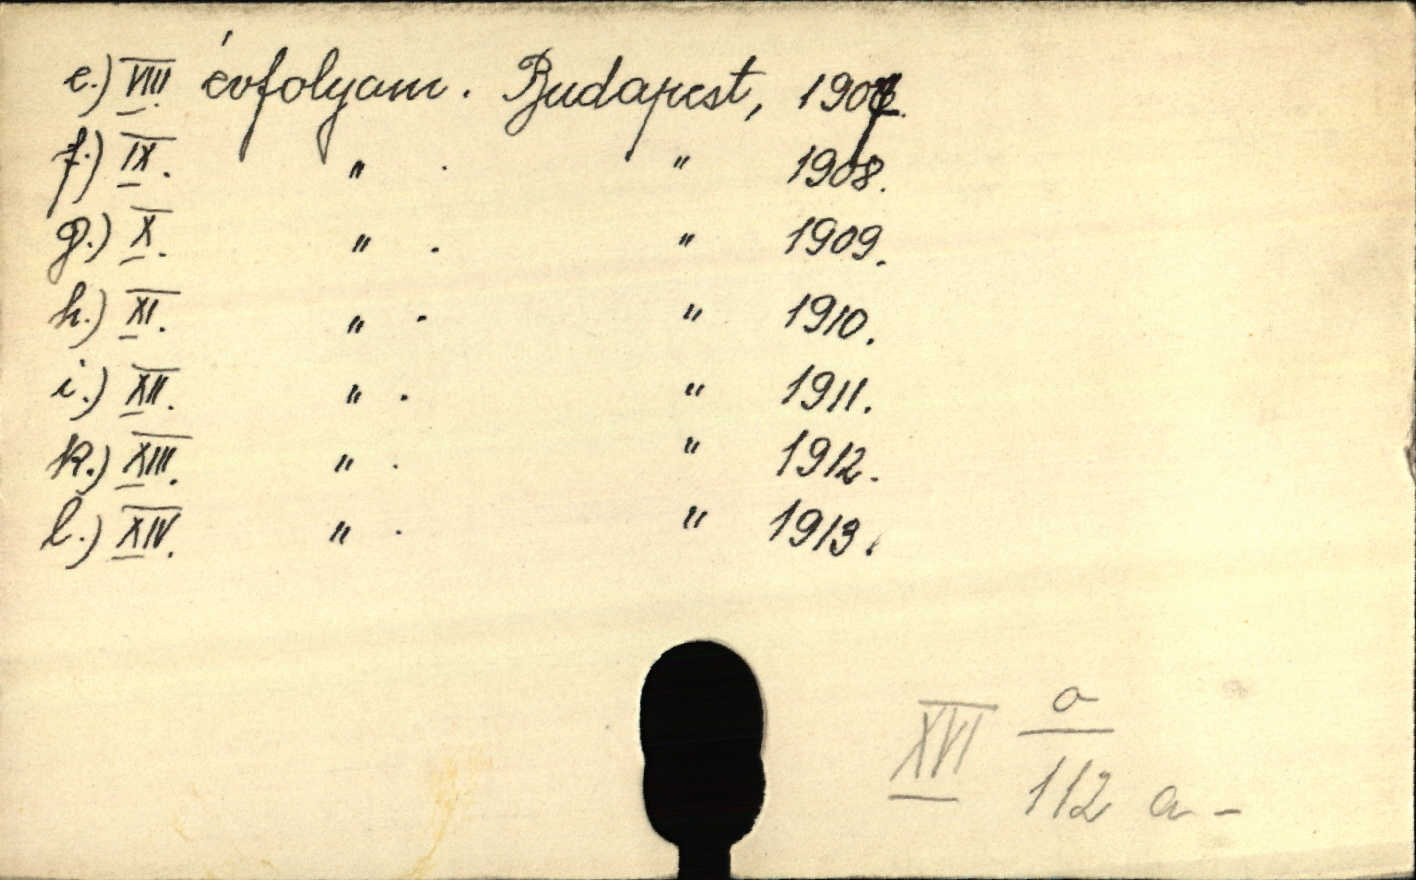 e.) VIII. évfolyam. Budapest, 1907.
f.) IX. " . " 1908.
g.) X. " . " 1909.
h.) XI. " . " 1910.
i.) XII. " . " 1911.
k.) XIII. " . " 1912.
l.) XIV. " . " 1913.
XVI a
112 a -